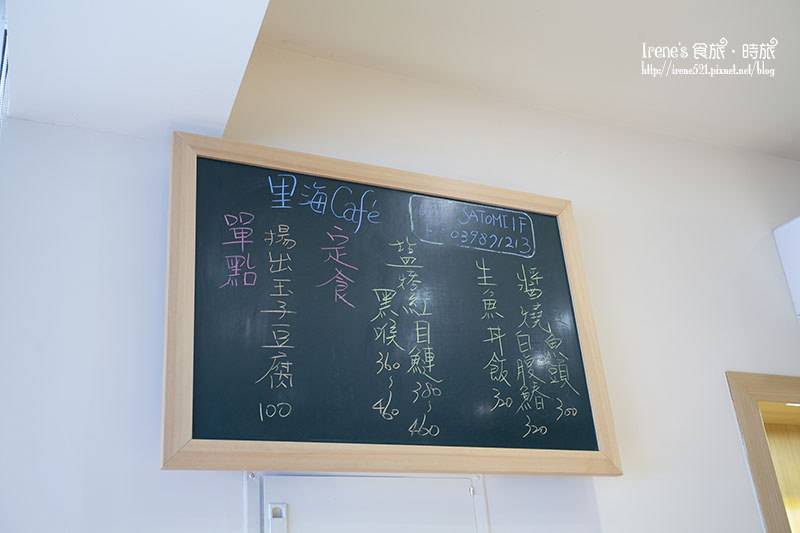 Irene's 食旅·時旅
http://irene521.pixnet.net/blog
里海Café
SATOMI 1F
039871213
醬燒魚頭 300
白腹鰆 320
生魚丼飯 320
塩烤紅目鰱 380~460
黑喉 360~460
定食
揚出玉子豆腐 100
單點